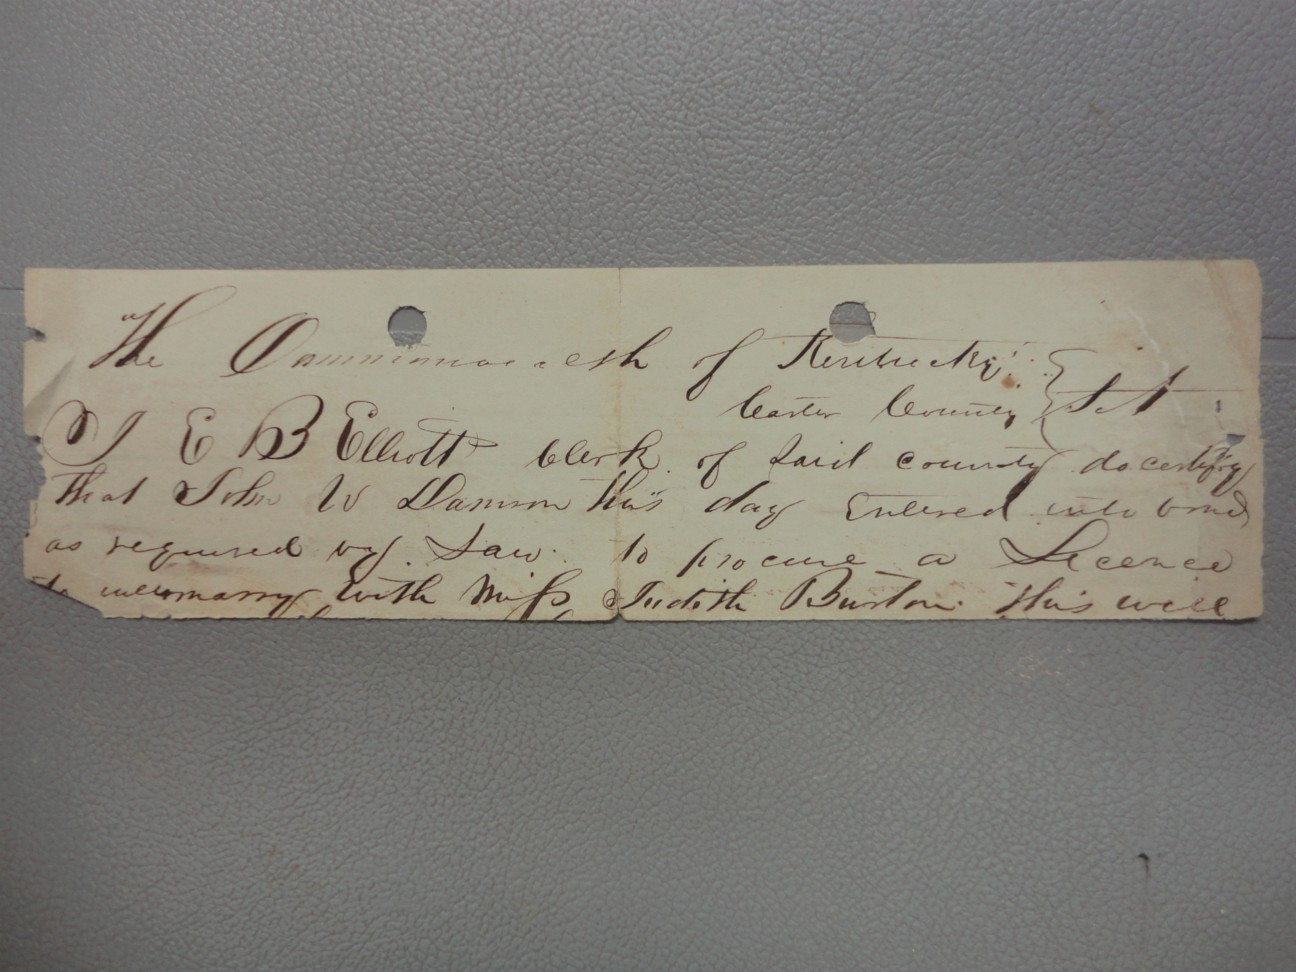 The Commonwealth of Kentucky
Carter County Sct
I E B Elliott Clerk of said county do certify
that John W Damron this day Entered into bond
as required by Law to procure a Licence
to intermarry with Miss Judith Burton. This will